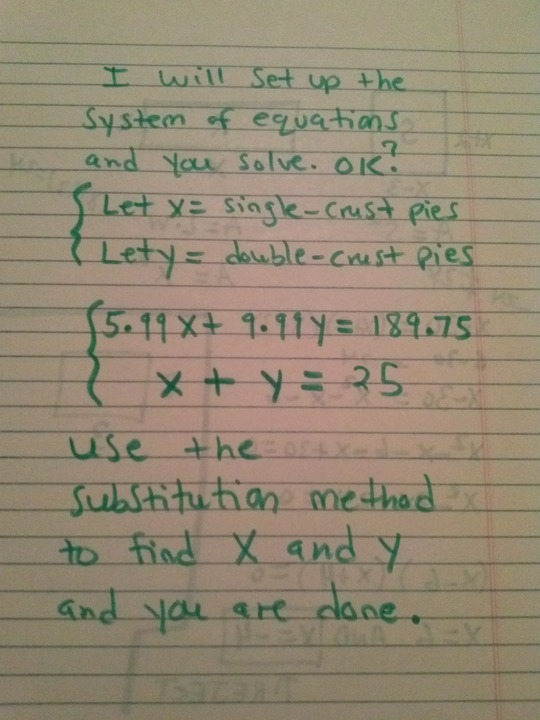 I will set up the
system of equations
and you solve. OK?
Let x = single-crust pies
Let y = double-crust pies
5.99x + 9.99y = 189.75
x + y = 25
use the
substitution method
to find X and Y
and you are done.